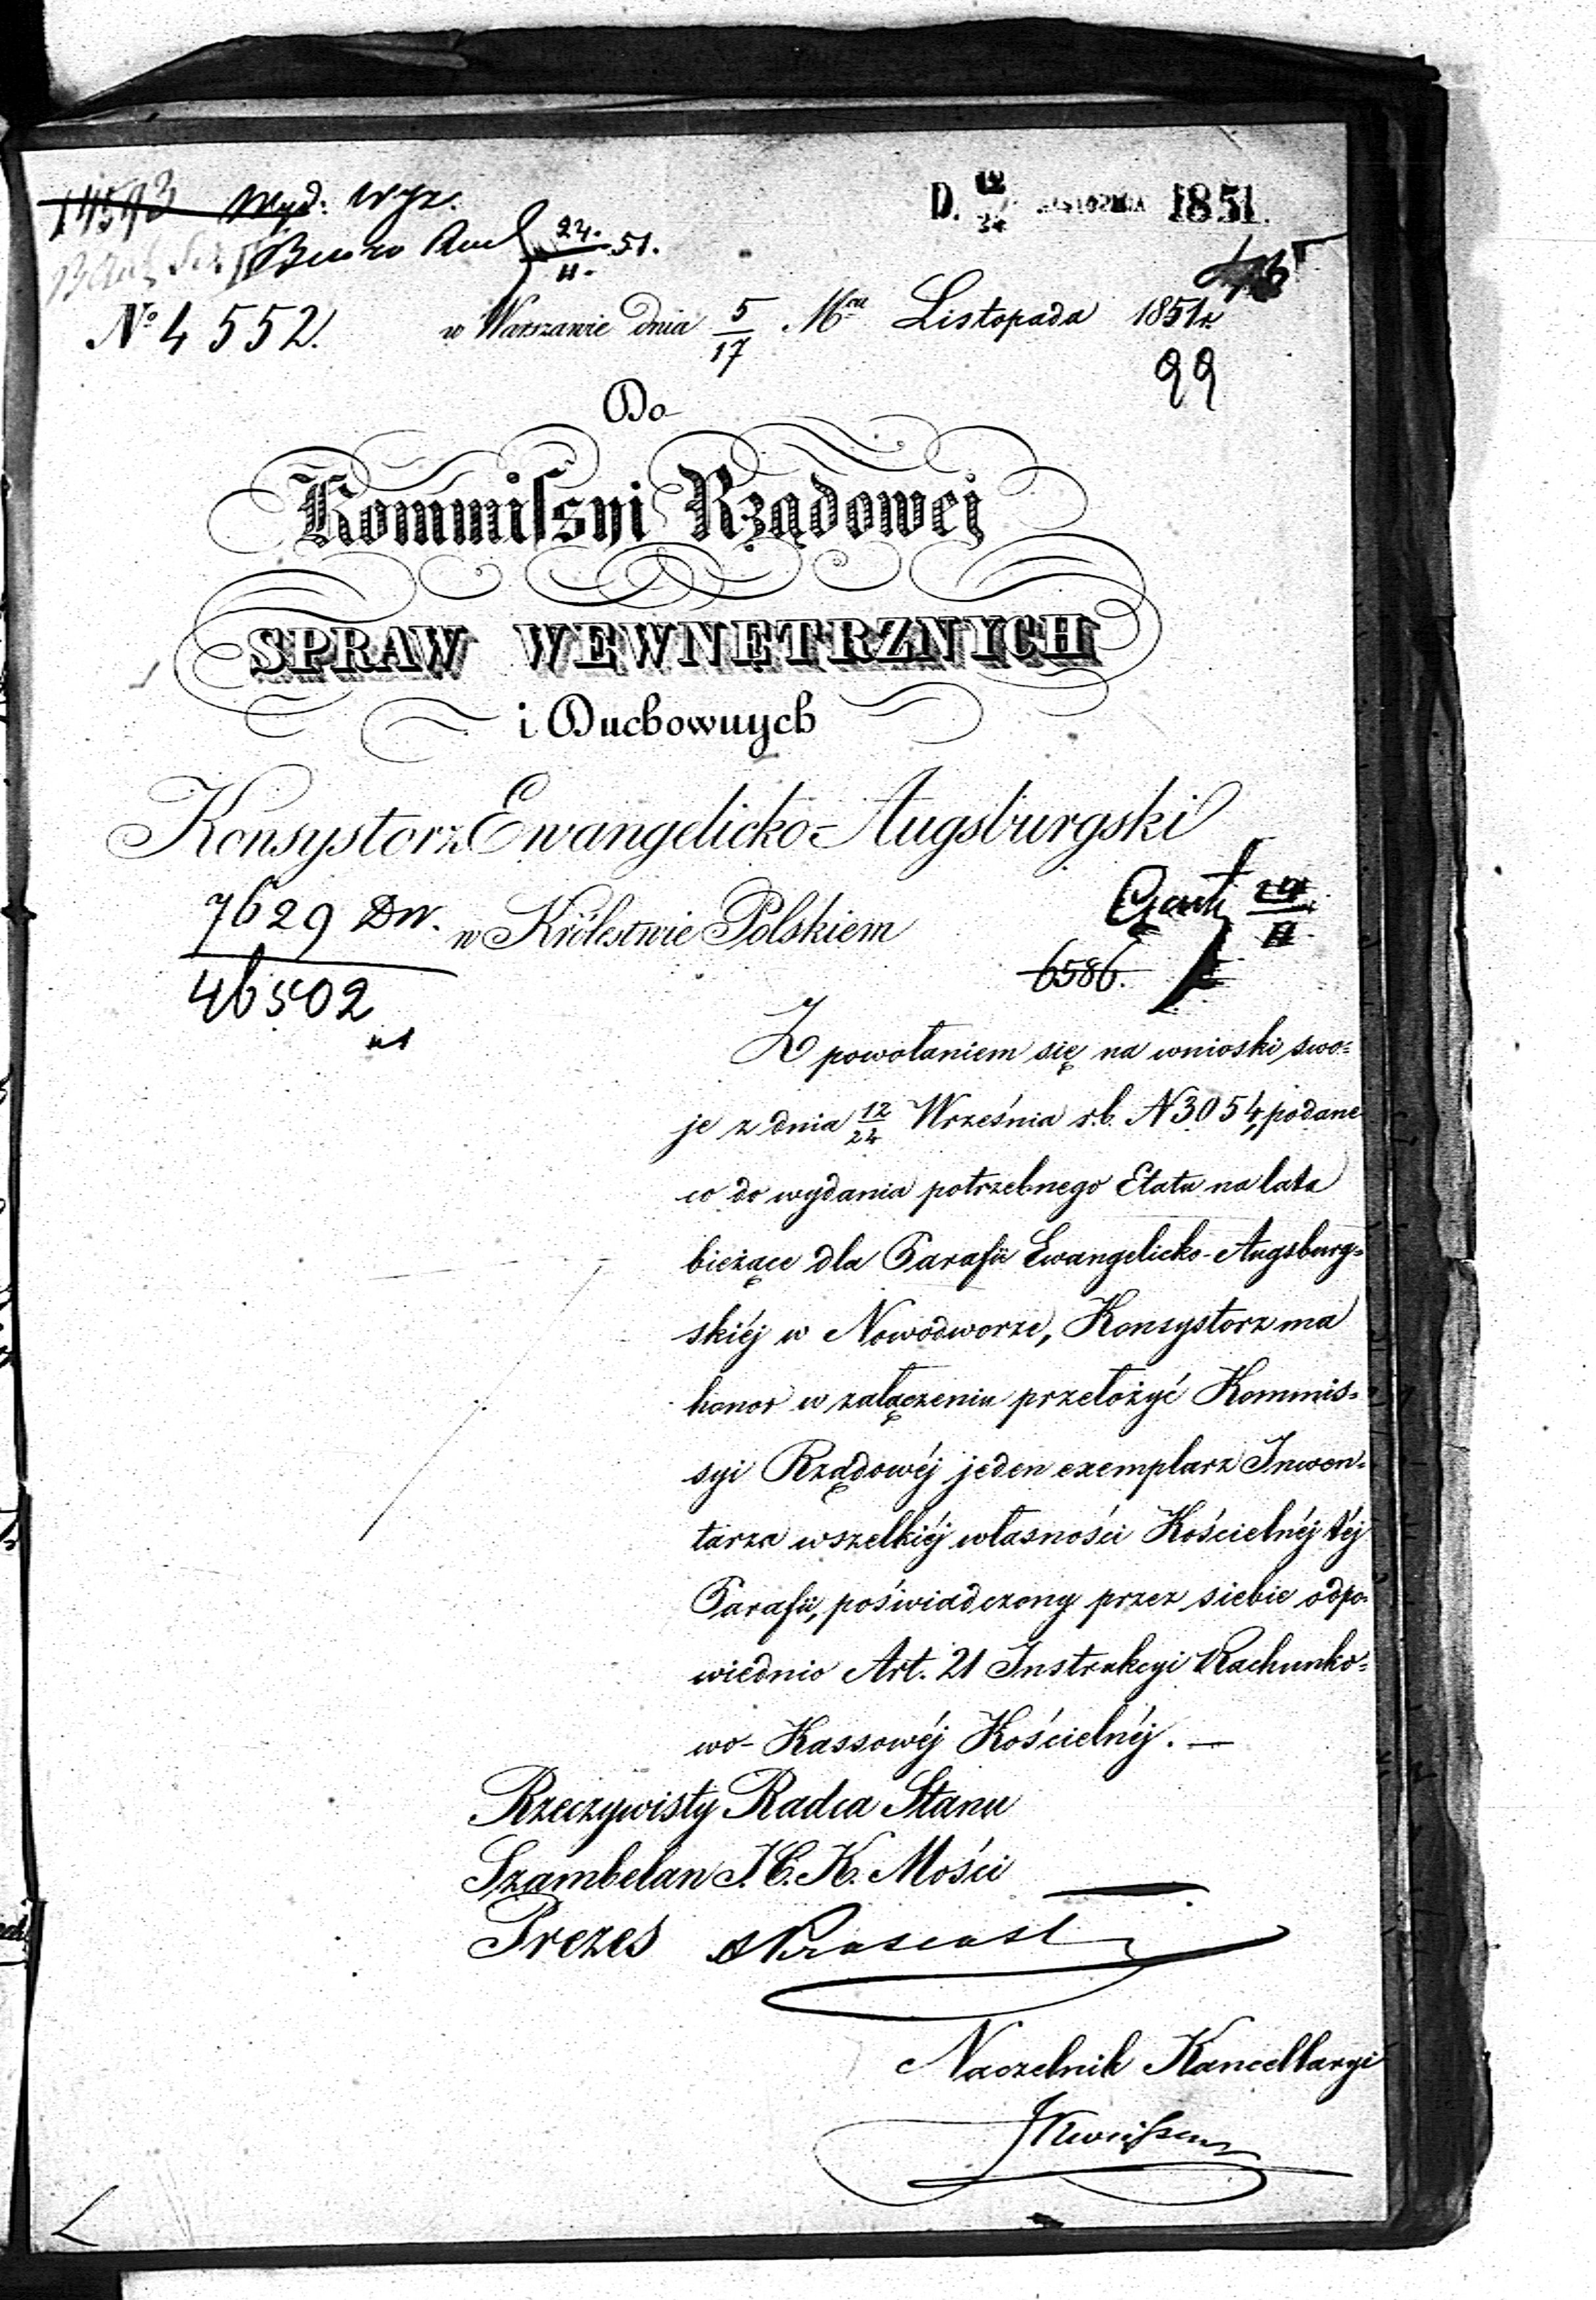 14593 Wyd: Wyz.
D. 12/24 LISTOPADA 1851.
Biuro Rach 24./11. 51.
№ 4552. w Warszawie dnia 5/17 Mca Listopada 1851 r.
99
Do
Kommissyi Rządowej
SPRAW WEWNĘTRZNYCH
i Duchownych
Konsystorz Ewangelicko-Augsburgski
7629 DW. w Królestwie Polskiem
46502
6586.
Z powołaniem się na wnioski swo=
je z dnia 12/24 Września r.b. N 3054, podane
co do wydania potrzebnego Etatu na lata
bieżące dla Parafii Ewangelicko-Augsburg=
skiéj w Nowodworze, Konsystorz ma
honor w załączeniu przełożyć Kommis=
syi Rządowéj jeden exemplarz Inwen=
tarza wszelkiéj własności Kościelnéj téj
Parafii, poświadczony przez siebie odpo=
wiednio Art. 21 Instrukcyi Rachunko=
wo-Kassowéj Kościelnéj. —
Rzeczywisty Radca Stanu
Szambelan J. C. K. Mości
Prezes
Naczelnik Kancellaryi